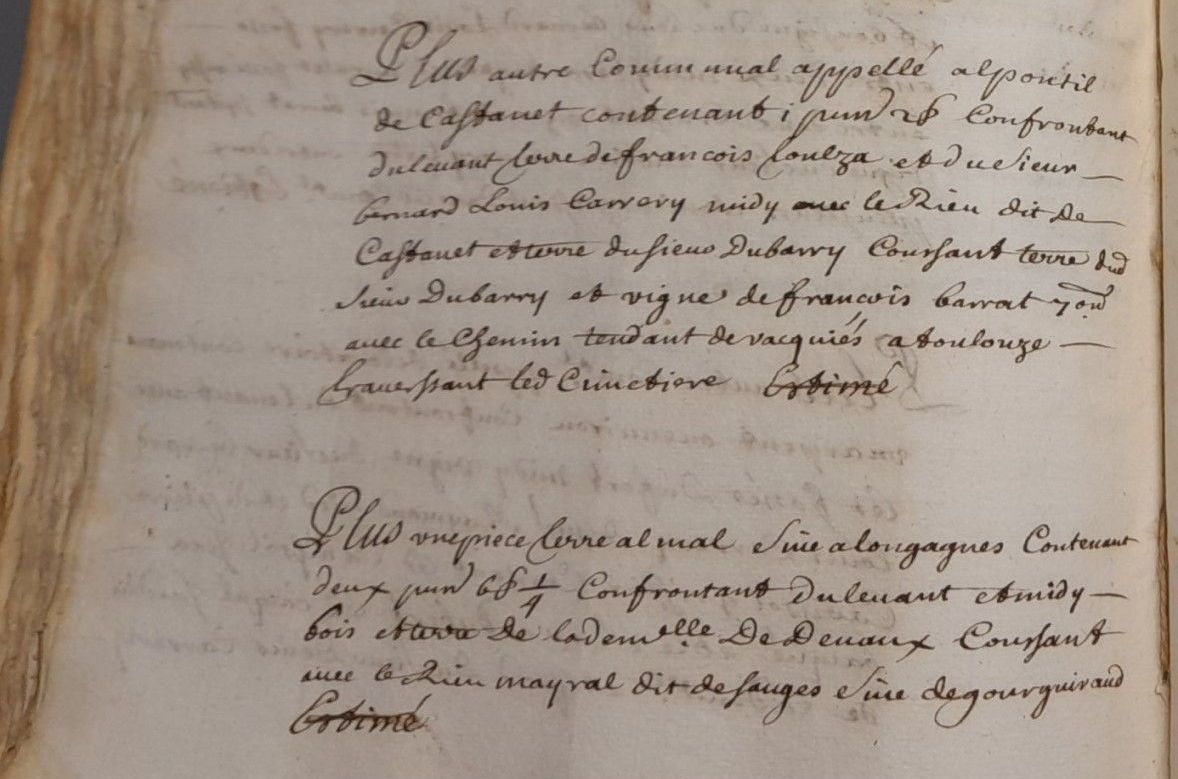 Plus autre Communal appellé alpontil
de Castanet contenant 1 pun^d 2b Confrontant
du levant terre de francois Coulza et du sieur
bernard Louis Carrery midy avec le Rieu dit de
Castanet et terre du sieur Dubarry Couchant terre dud
sieur Dubarry et vigne de francois barrat
avec le Chemin tendant de vacquiés a toulouze
traversant led Cimetiere Estimé
Plus une piece terre al mal sive a longagnes Contenant
deux pun^d 6b 1/4 Confrontant du levant et midy
bois et terre De lademelle De Devaux Couchant
avec le Rieu mayral dit desauges sive degourguiraud
Estimé